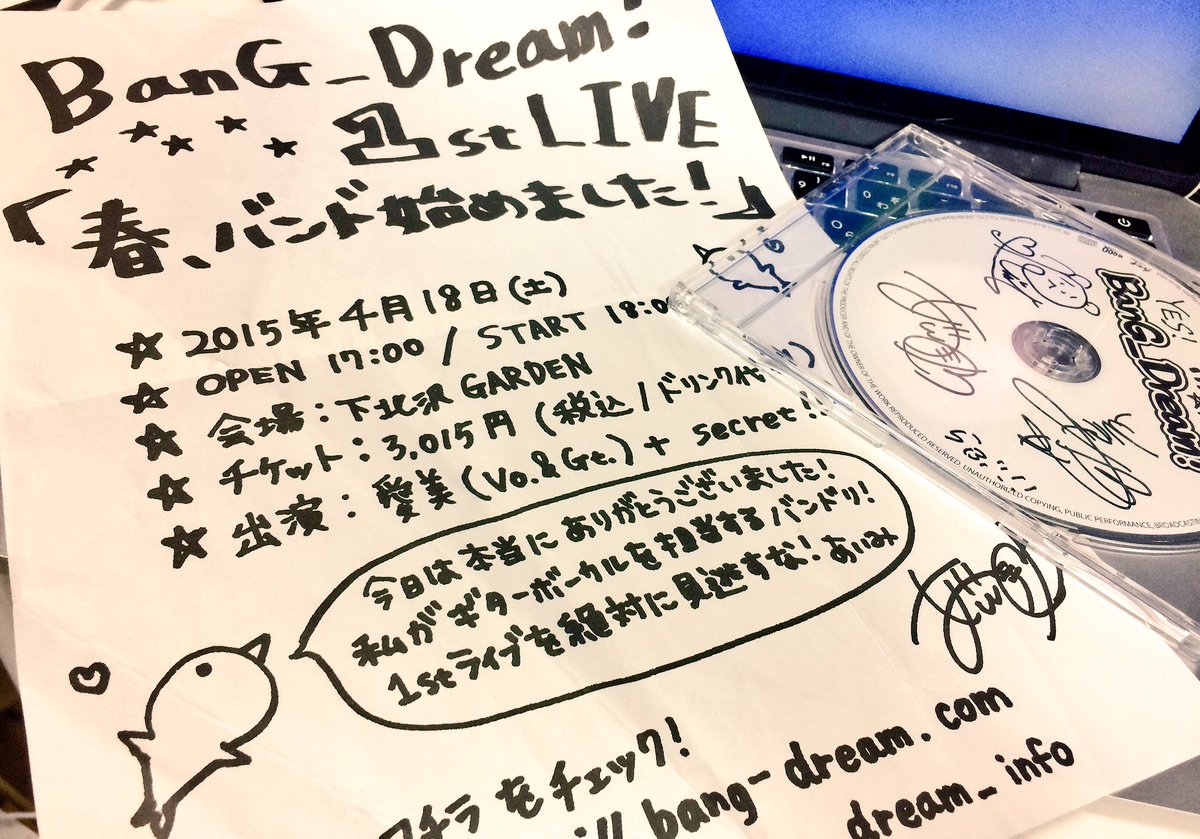 BanG_Dream!
1st LIVE
「春、バンド始めました!」
★ 2015年4月18日(土)
★ OPEN 17:00 / START 18:00
★ 会場:下北沢 GARDEN
★ チケット:3,015円(税込/ドリンク代
★ 出演:愛美(Vo.&Gt.)+ secret!!
今日は本当にありがとうございました!
私がギターボーカルを担当するバンドリ!
1stライブを絶対に見逃すな!あいみ
コチラをチェック!
bang-dream.com
dream_info
YES!
BanG_Dream!
OF THE PRODUCER AND OF THE OWNER OF THE WORK REPRODUCED RESERVED. UNAUTHORIZED COPYING, PUBLIC PERFORMANCE, BROADCASTING